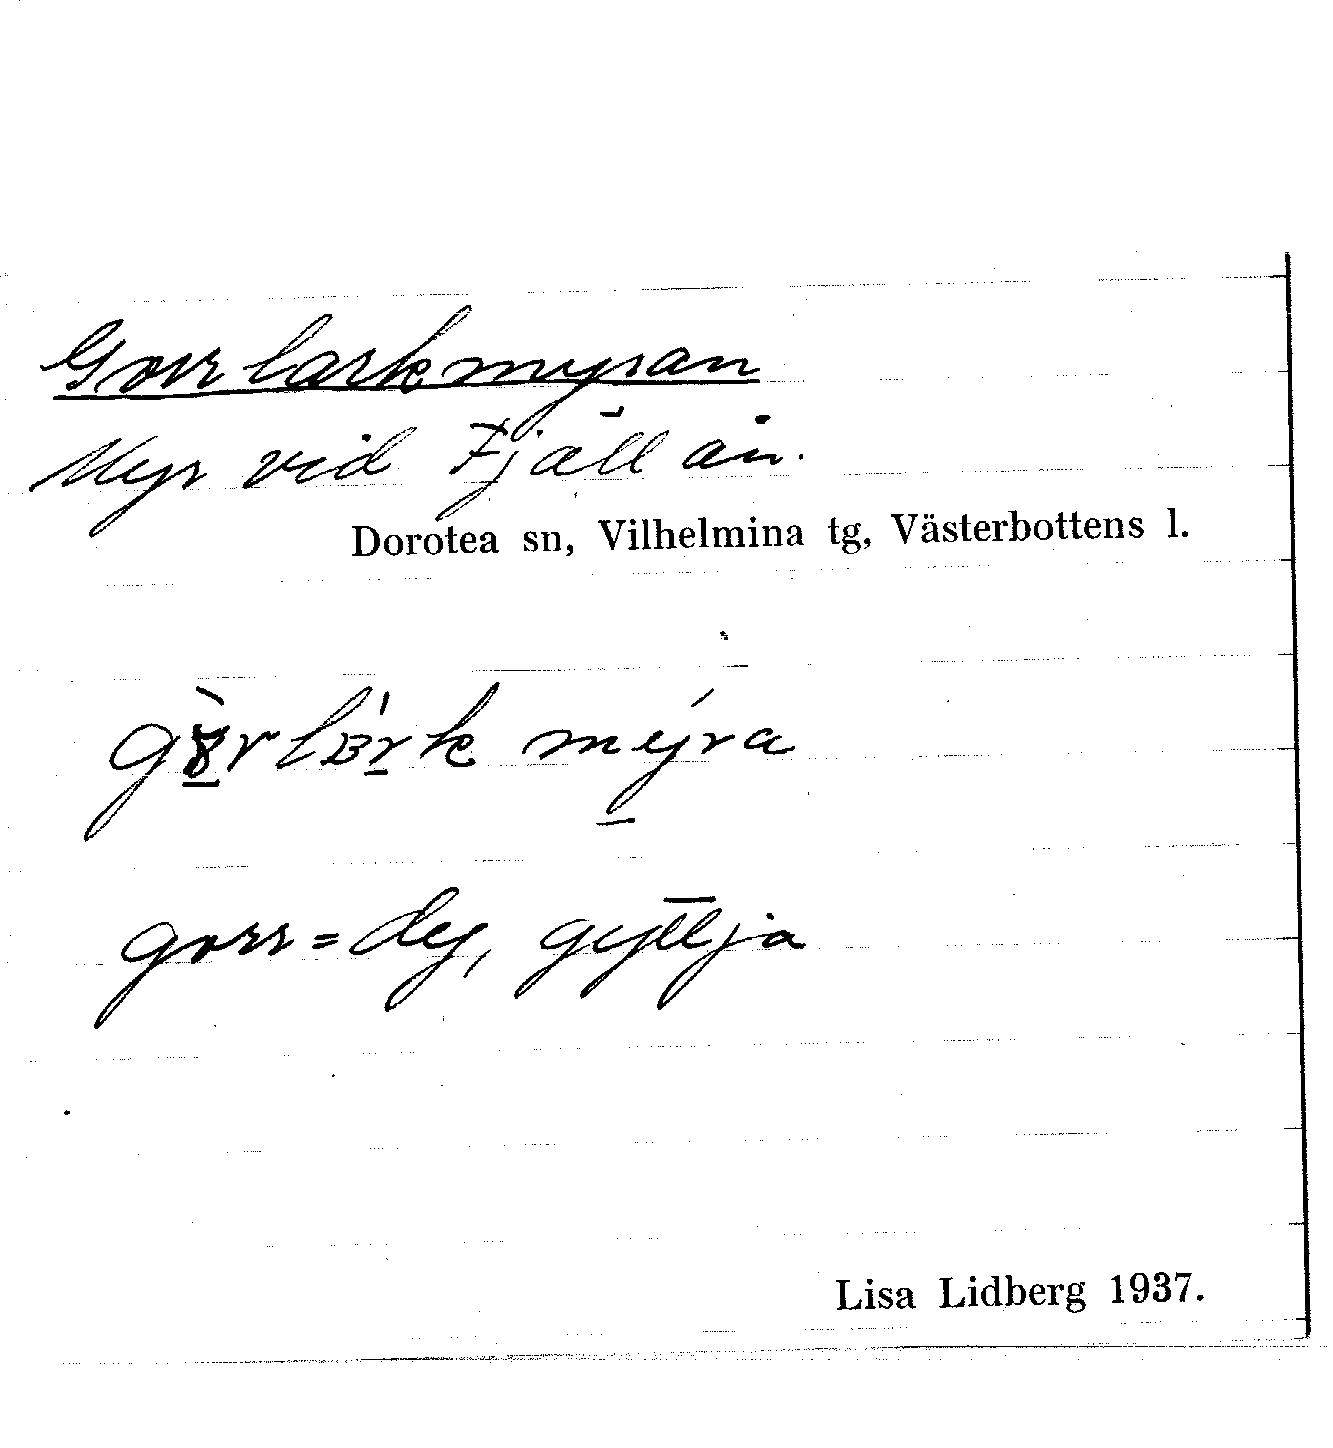 Gorrlarkmyran
Myr vid Fjällån.
Dorotea sn, Vilhelmina tg, Västerbottens l.
gorr = dy, gyttja
Lisa Lidberg 1937.